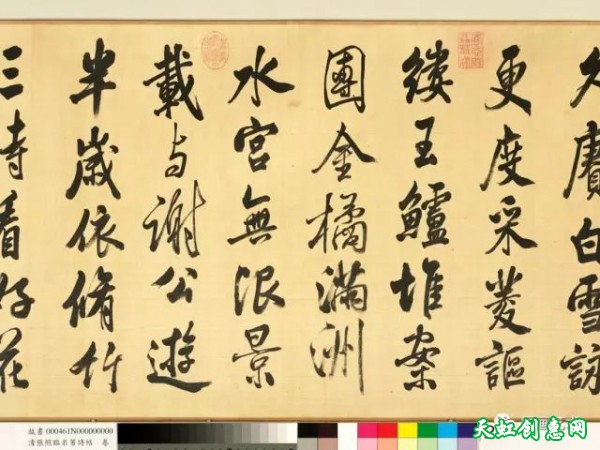 久賡白雪詠
更度采菱謳
縷玉鱸堆案
團金橘滿洲
水宮無限景
載与謝公遊
半歲依脩竹
三時看好花
故書 000461N000000000
清張照臨米芾詩帖 卷
天虹创惠网